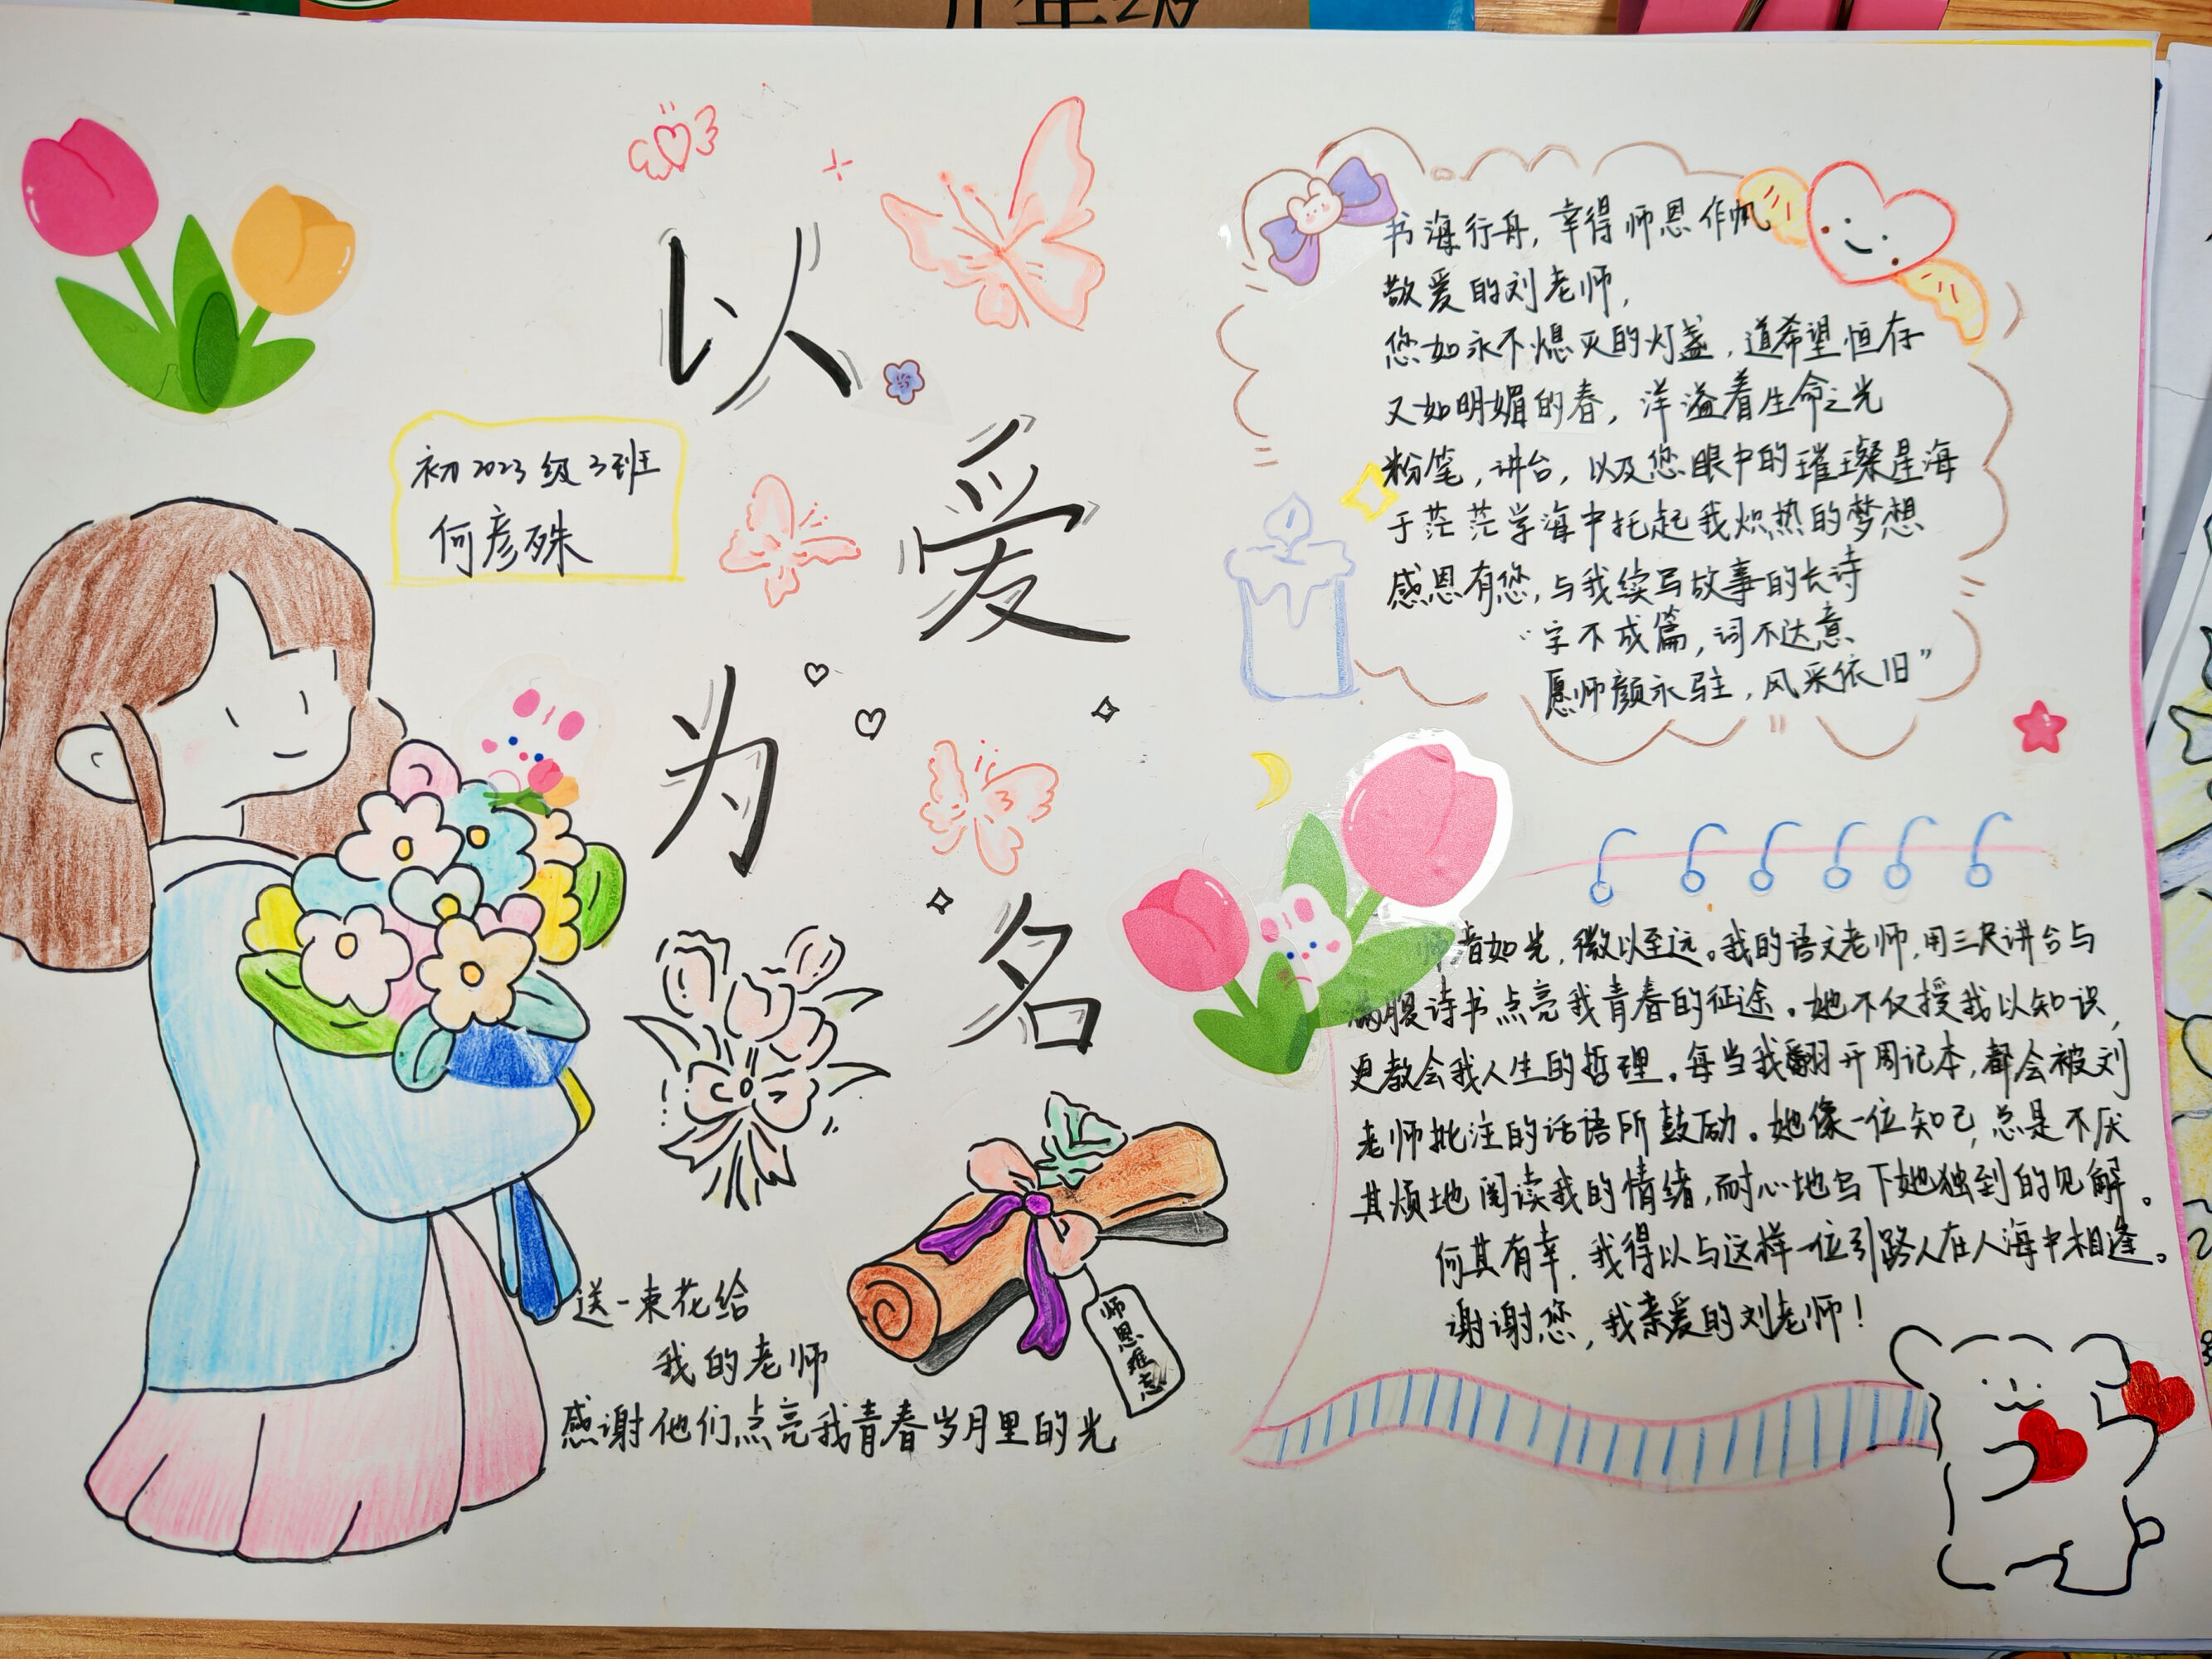 年级
初2023级3班
何彦殊
以
爱
为
名
书海行舟，幸得师恩作帆
敬爱的刘老师，
您如永不熄灭的灯盏，道希望恒存
又如明媚的春，洋溢着生命之光
粉笔，讲台，以及您眼中的璀璨星海
于茫茫学海中托起我炽热的梦想
感恩有您，与我续写故事的长诗
“字不成篇，词不达意
愿师颜永驻，风采依旧”
师者如光，微以至远。我的语文老师，用三尺讲台与
满腹诗书点亮我青春的征途。她不仅授我以知识，
更教会我人生的哲理。每当我翻开周记本，都会被刘
老师批注的话语所鼓励。她像一位知己，总是不厌
其烦地阅读我的情绪，耐心地写下她独到的见解。
何其有幸，我得以与这样一位引路人在人海中相逢。
谢谢您，我亲爱的刘老师！
师恩难忘
送一束花给
我的老师
感谢他们点亮我青春岁月里的光